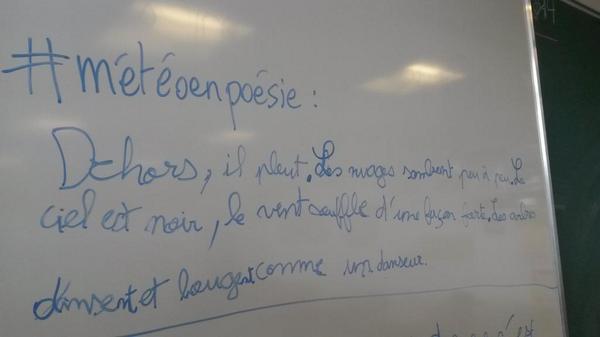 #météoenpoésie :
Dehors, il pleut. Les nuages sombrent peu à peu. Le
ciel est noir, le vent souffle d'une façon forte. Les arbres
dansent et bougent comme un danseur.